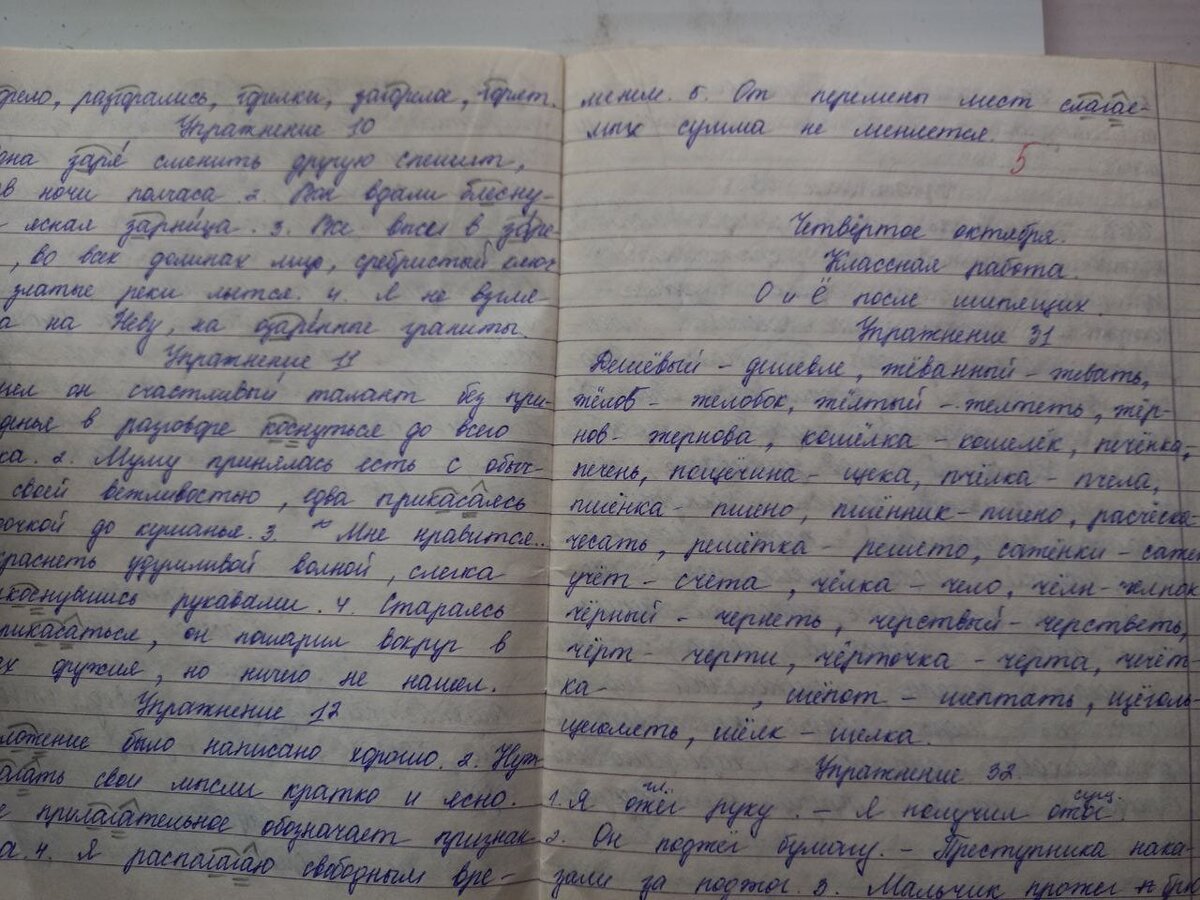 горело, разгорались, горелки, загорелое, горят.
Упражнение 10
заре сменить другую спешит,
в ночи полчаса. 2. Вот вдали блесну-
ясная зарница. 3. Все выси в заре
, во всех долинах мир, сребристый ключ
златые реки льются. 4. Я не взгля-
на Неву, на озарённые граниты.
Упражнение 11
он счастливый талант без при-
в разговоре коснуться до всего
2. Муму принялась есть с обыч-
своей вежливостью, едва прикасаясь
до кушанья. 3. Мне нравится..
удушливой волной, слегка
рукавами. 4. Стараясь
он пошарил вокруг в
но ничего не нашел.
Упражнение 12
было написано хорошо. 2. Нуж-
свои мысли кратко и ясно.
прилагательное обозначает признак
4. Я располагаю свободным вре-
менем. 5. От перемены мест слагае-
мых сумма не меняется.
5
Четвёртое октября.
Классная работа.
О и Ё после шипящих.
Упражнение 31
Дешёвый - дешевле, жёванный - жевать,
жёлоб - желобок, жёлтый - желтеть, жёр-
нов - жернова, кошёлка - кошелёк, печёнка,
печень, пощёчина - щека, пчёлка - пчела,
пшёнка - пшено, пшённик - пшено, расчёска-
чесать, решётка - решето, сажёнки -
учёт - счета, чёлка - чело, чёлн - челнок
чёрный - чернеть, черствый - черстветь,
чёрт - черти, чёрточка - черта, чечёт-
ка - , шёпот - шептать, щёголь-
щеголять, шёлк - шелка.
Упражнение 32.
гл. сущ.
1. Я ожёг руку. - Я получил ожог.
2. Он поджёг бумагу. - Преступника нака-
зали за поджог. 3. Мальчик прожег